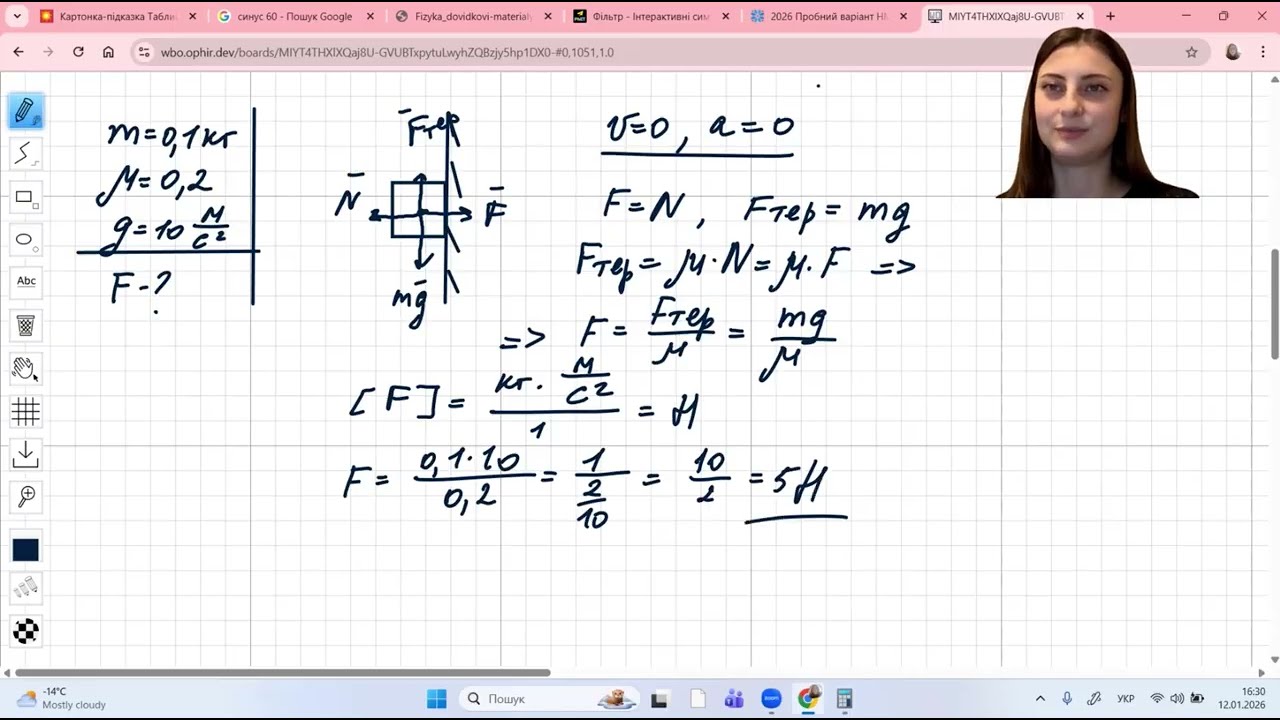 Картонка-підказка Табли
синус 60 - Пошук Google
Fizyka_dovidkovi-materialy
Фільтр - Інтерактивні сим
2026 Пробний варіант НМ
MIYT4THXIXQaj8U-GVUBT
wbo.ophir.dev/boards/MIYT4THXIXQaj8U-GVUBTxpytuLwyhZQBzjy5hp1DX0-#0,1051,1.0
m=0,1кг
μ=0,2
g=10 м/с²
F-?
Fтер
N
F
mg
v=0, a=0
F=N, Fтер=mg
Fтер=μ·N=μ·F =>
=> F=Fтер/μ=mg/μ
[F]=кг·м/с²/1=Н
F=0,1·10/0,2=1/2/10=10/2=5Н
Abc
-14°C
Mostly cloudy
Пошук
УКР
16:30
12.01.2026